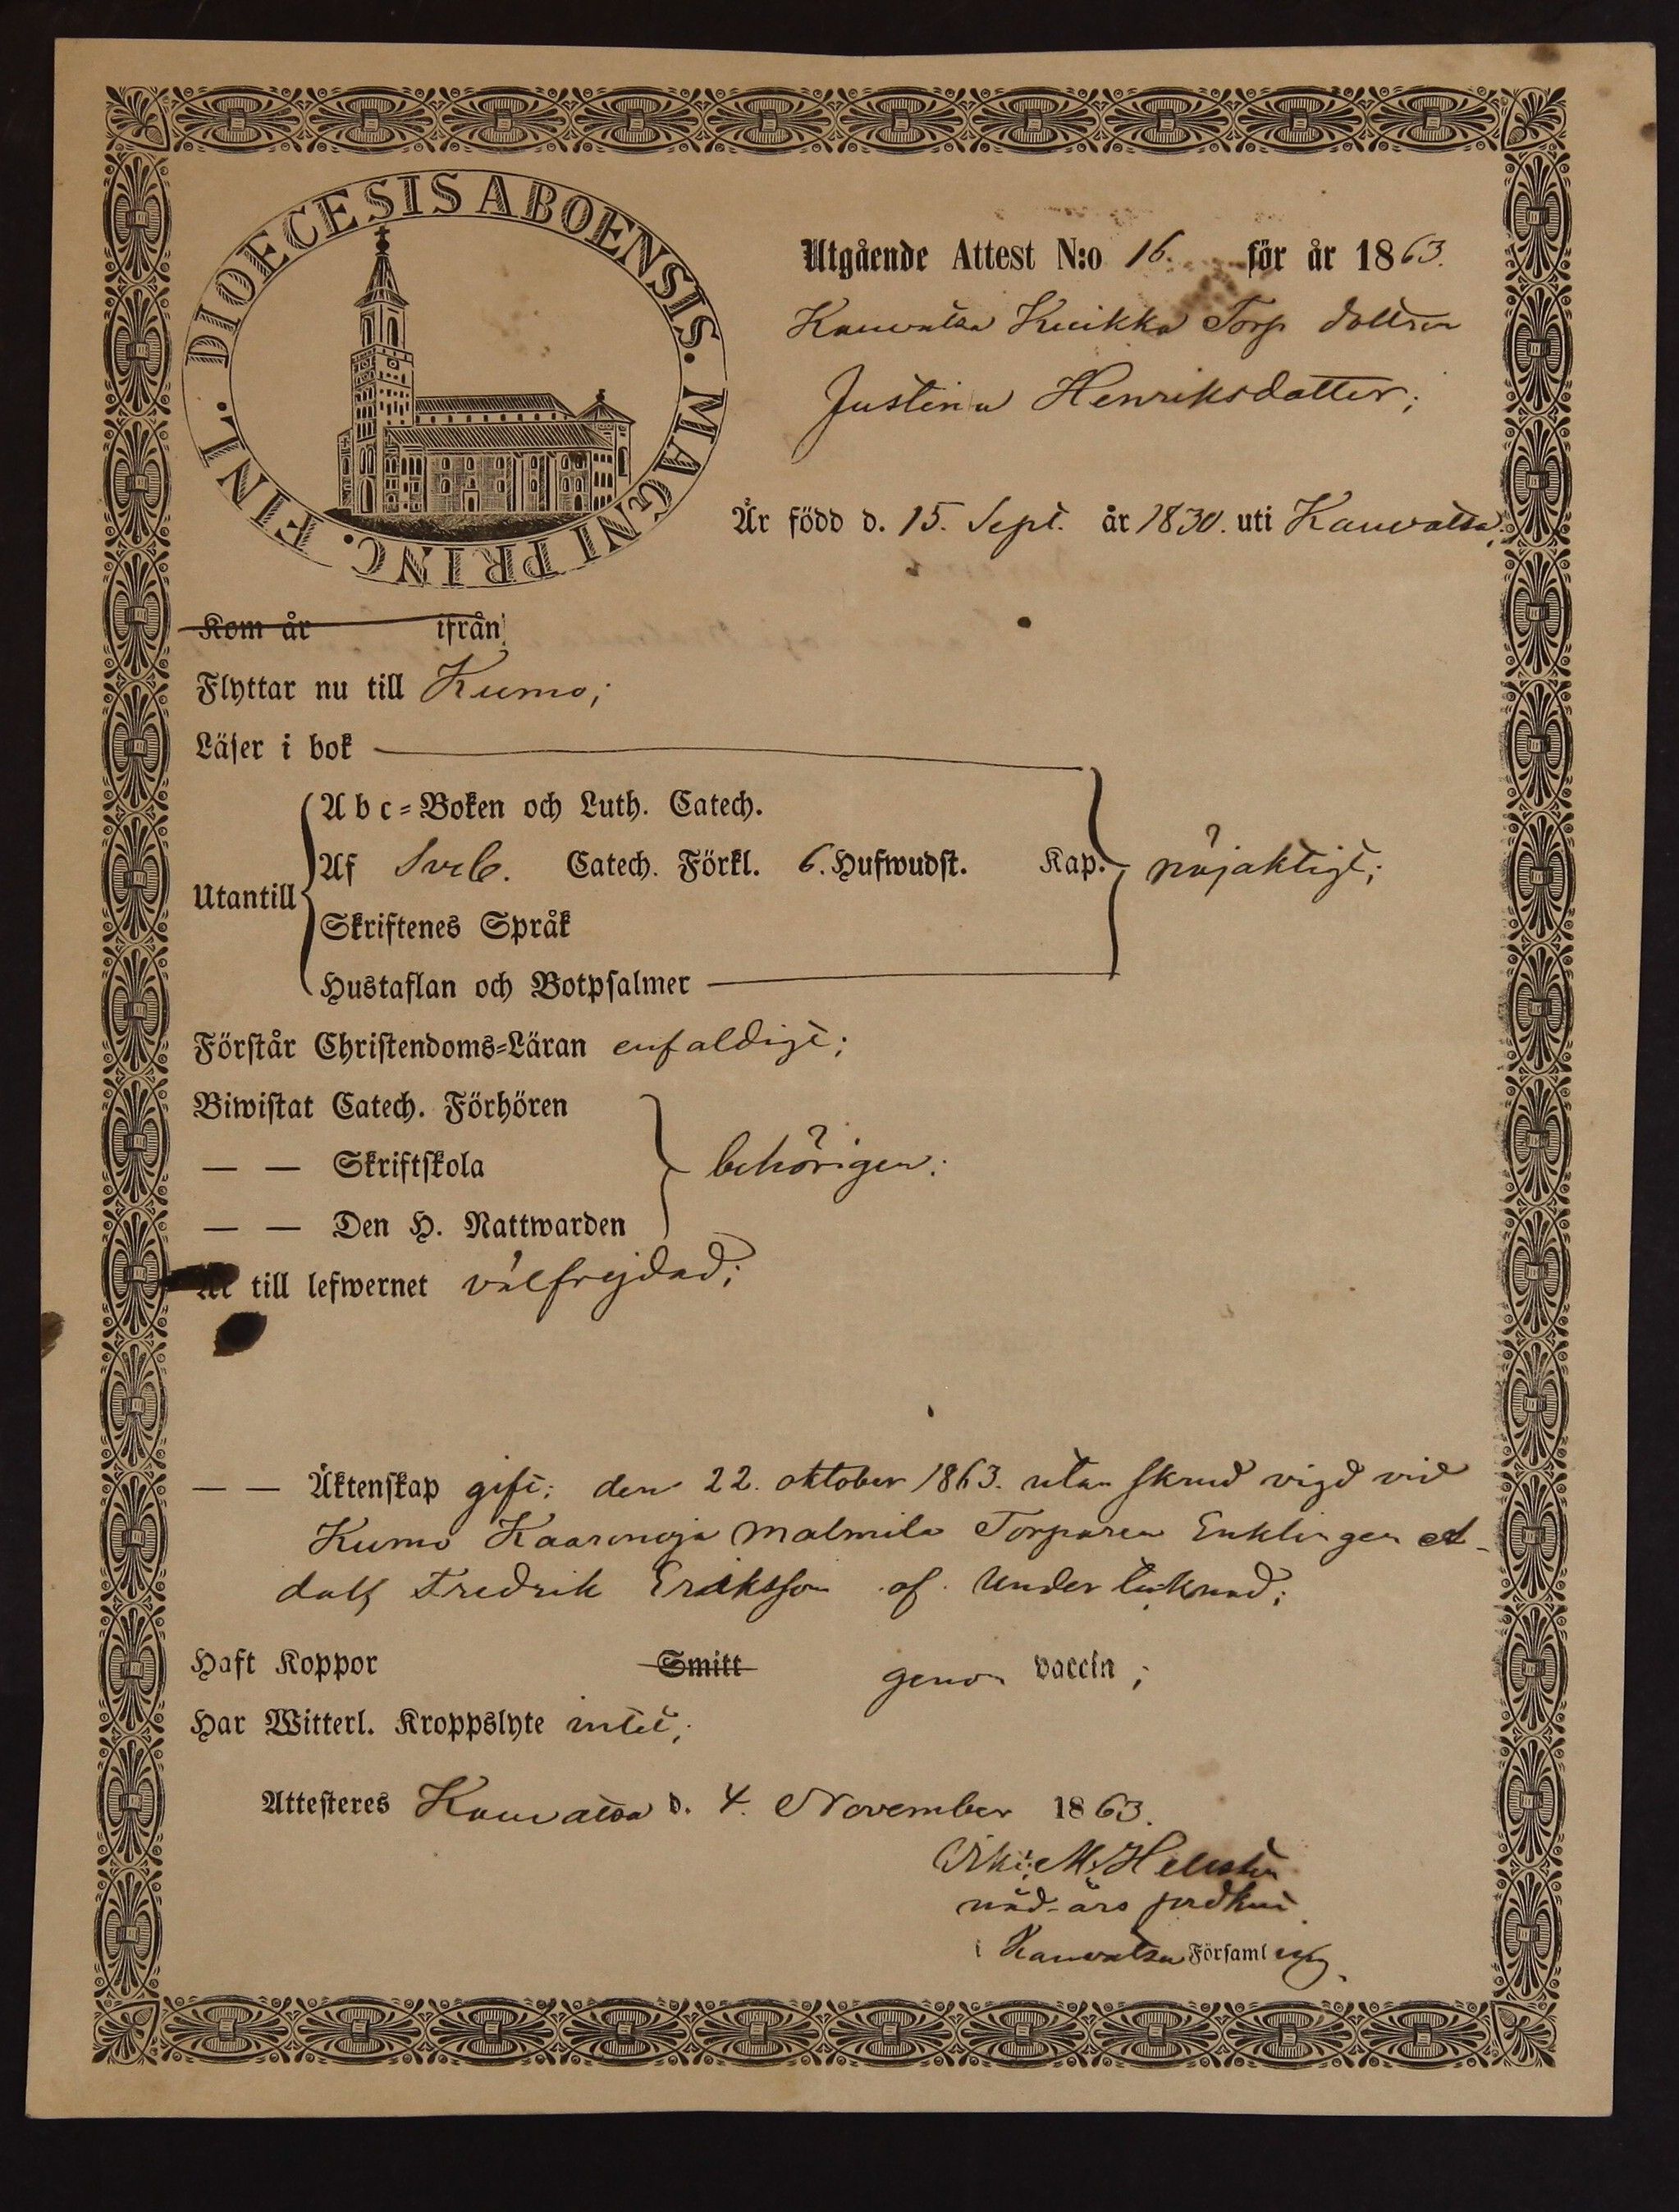 DIOECESIS ABOENSIS. MAGNI PRINC. FINL.
Utgående Attest N:o 16. för år 1863.
Kauvatsa Kuikka Torp dottren
Justina Henriksdotter;
Är född d. 15. Sept. år 1830. uti Kauvatsa;
Kom år ifrån
Flyttar nu till Kumo;
Läser i bok
Abc-Boken och Luth. Catech.
Utantill Af Sveb. Catech. Förkl. 6. Hufwudst. Kap. nöjaktigt;
Skriftenes Språk
Hustaflan och Botpsalmer
Förstår Christendoms-Läran enfaldigt;
Biwistat Catech. Förhören
— — Skriftskola behörigen:
— — Den H. Nattwarden
Är till lefwernet välfrejdad;
— — Äktenskap gift; den 22. oktober 1863. utan skrud vigd vid
Kumo Kaaronoja Malmila Torparen Enklingen A-
dolf Fredrik Eriksson af Undertecknad;
Haft Koppor Smitt genom vaccin;
Har Witterl. Kroppslyte intet;
Attesteres Kauvatsa d. 4. November 1863.
M. Hellstén
nåd-års predknt
i Kauvatsa Församling